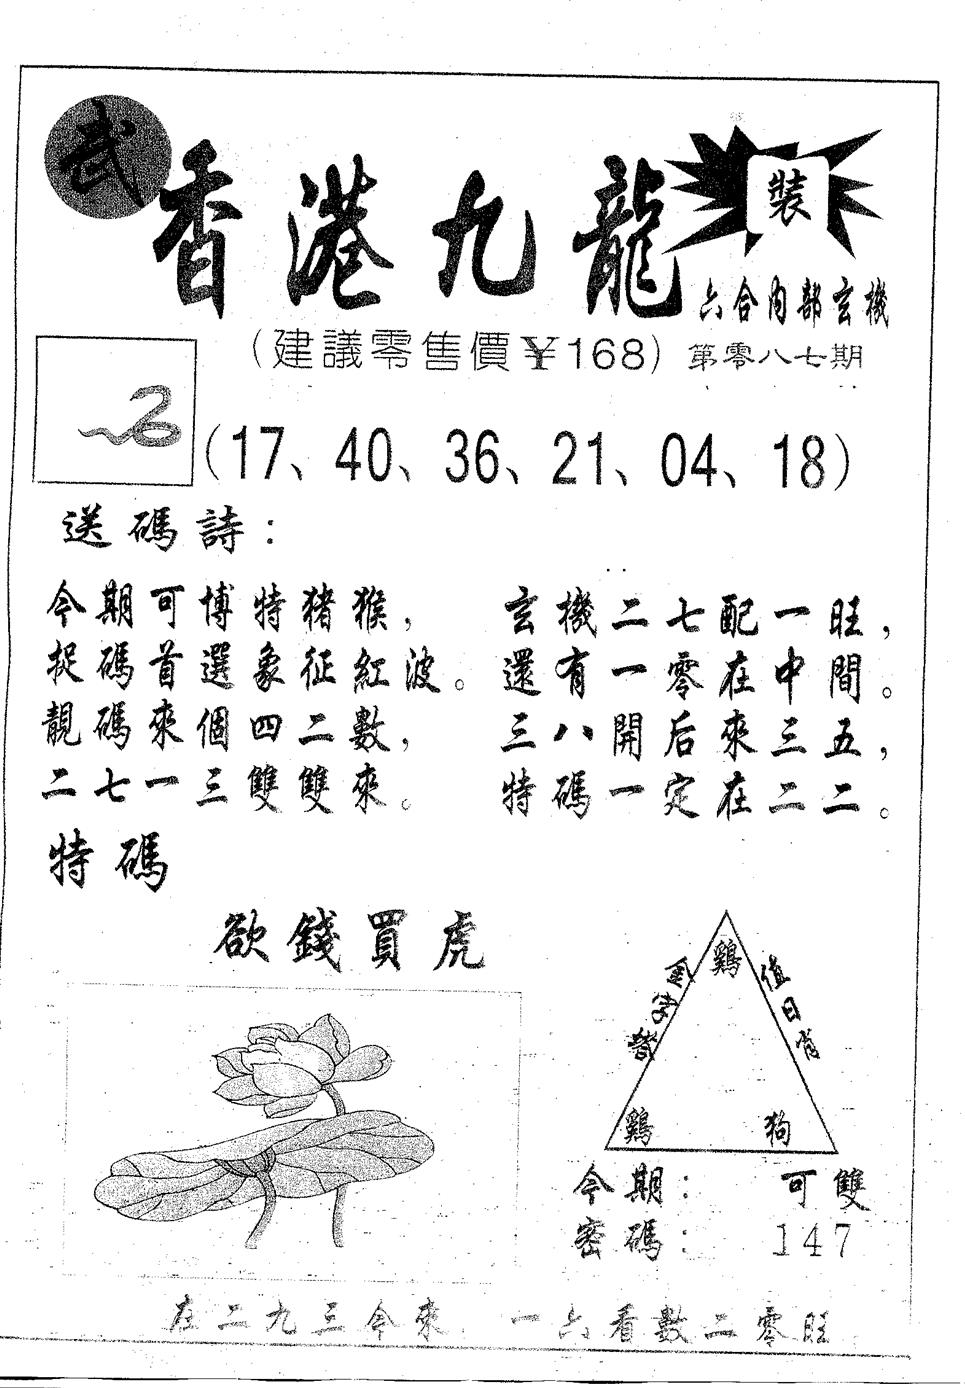 武
香港九龍
裝
六合內部玄機
(建議零售價¥168) 第零八七期
(17、40、36、21、04、18)
送碼詩：
今期可博特猪猴，
捉碼首選象征紅波。
靚碼來個四二數，
二七一三雙雙來。
玄機二七配一旺，
還有一零在中間。
三八開后來三五，
特碼一定在二二。
特碼
欲錢買虎
金字塔
值日肖
鷄
鷄 狗
今期： 可雙
密碼： 147
在二九三今來 一六看數二零旺